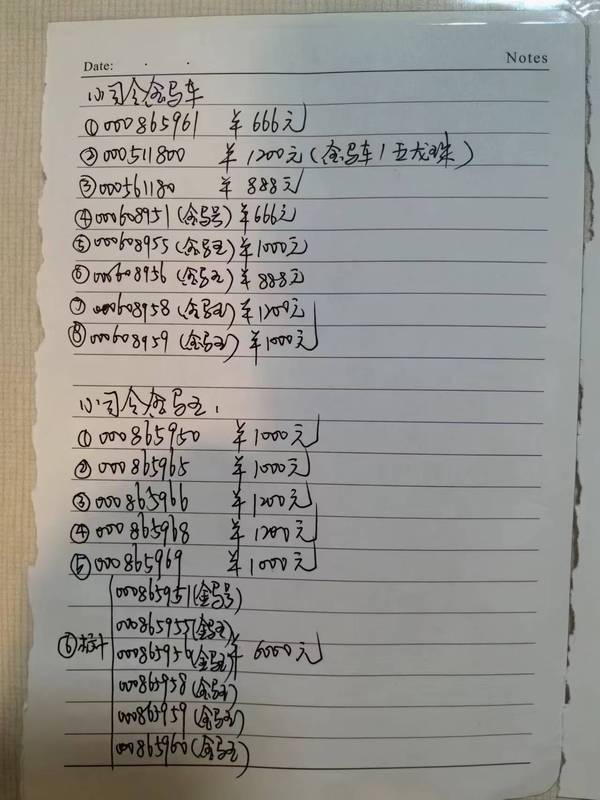 Date: . .
Notes
小司令金马车
①000865961 ¥666元
②000511800 ¥1200元(金马车/五龙珠)
③000561180 ¥888元
④000608951(金马号)¥666元
⑤000608955(金马王)¥1000元
⑥000608956(金马王)¥888元
⑦000608958(金马王)¥1200元
⑧000608959(金马王)¥1000元
小司令金马王:
①000865950 ¥1000元
②000865965 ¥1000元
③000865966 ¥1200元
④000865968 ¥1200元
⑤000865969 ¥1000元
000865951(金马号)
000865955(金马王)
⑥标十 000865956(金马王)¥6000元
000865958(金马王)
000865959(金马王)
000865960(金马王)